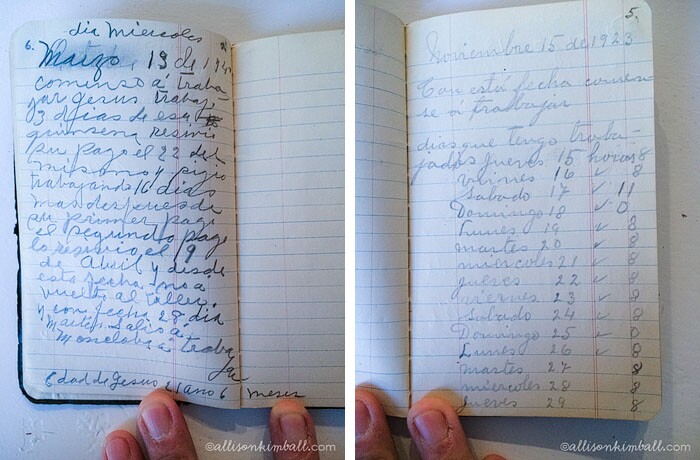 dia Miercoles
6.
Marzo, 19 de 194
comenso á traba
jar Jesus trabaj,
3 dias de esa
quinsena resivio
su pago el 22 del
mismo y
trabajando 16 dias
mas despues de
su primer pago
el segundo pago
lo resivio el 9
de Abril y desde
esta fecha no a
vuelto al taller.
y con fecha 28 dia
Martes Salio á
Monclova á trabaj
ar
Edad de Jesus 21 ano 6 meses
©allisonkimball.com
5.
Noviembre 15 de 1923
Con está fecha comen
se á trabbajar
dias que tengo traba-
jados Jueves 15 horas 8
Viernes 16 ✓ 8
Sabado 17 ✓ 11
Domingo 18 ✓ 0
Lunes 19 ✓ 8
martes 20 ✓ 8
miercoles 21 ✓ 8
jueves 22 ✓ 8
viernes 23 ✓ 8
Sabado 24 ✓ 8
Domingo 25 ✓ 0
Lunes 26 ✓ 8
Martes 27 8
miercoles 28 8
jueves 29 8
©allisonkimball.com